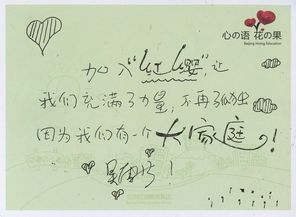 心の语 花の果
Beijing Hongying Education
加入“红缨”让
我们充满了力量,不再孤独
因为我们有一个大家庭の!